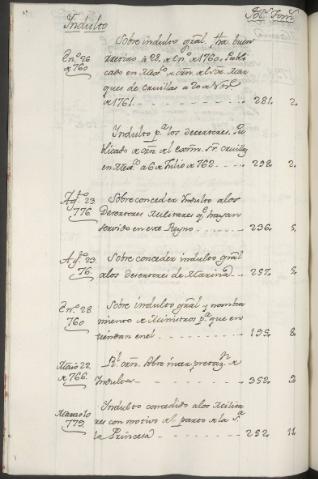 Indulto
Fol.s Tom.s
En.o 26 Sobre indulto gral, ha buen
de 760
de 22, de En.o de 1760. Publi
cado en Mex.co de orn. de el Mar
ques de Cruillas a 20 de Nov.e
de 1761. 281. 2.
Indulto p.a los desertores. Pu
blicado de orn. de el Exmo. S.r Cruillas
en Mex.co a 6 de Julio de 762 298. 2.
Ag.to 23 Sobre conceder Indulto a los
776. Desertores Militares q.e hayan
servido en ese Reyno. 236. 5.
Ag.to 23 Sobre conceder indulto gral
76. a los desertores de Marina. 257. 5.
En.o 28 Sobre indulto gral y nombra
760 miento de Ministros p.a que en
tiendan en el 195. 8.
Maio 22 R.l orn. sobre
de 766. Indultos 352.
Marzo 10 Indulto concedido a los Milita
779. res con motivo del parto de la S.a
la Princesa 252. 11